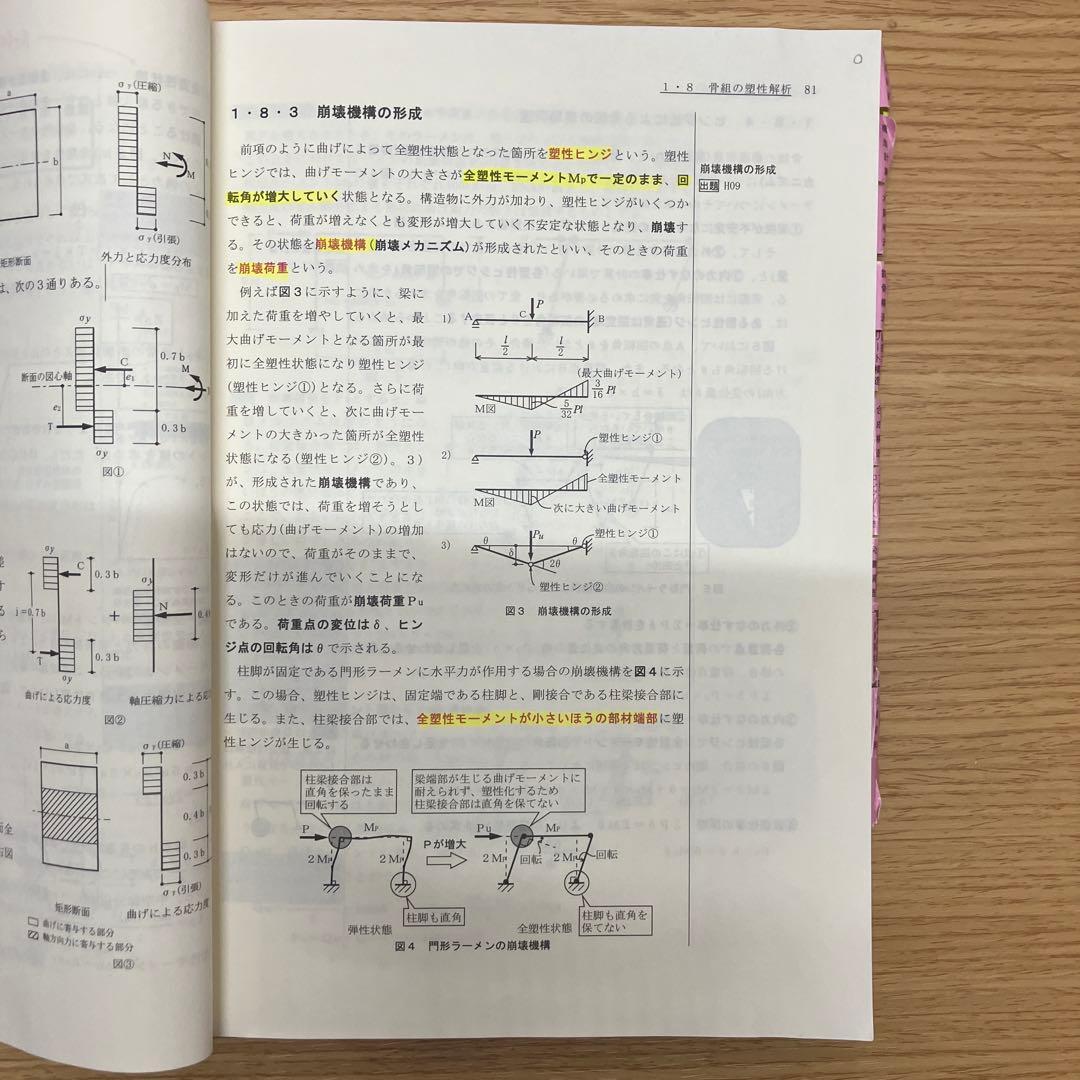 a
σy(圧縮)
b
N
M
σy(引張)
矩形断面
外力と応力度分布
は、次の3通りある。
σy
C
0.7b
M
断面の図心軸
e₁
e₂
T
0.3b
σy
図①
σy
C
0.3b
σy
j=0.7b
+
N
T
0.3b
曲げによる応力度
軸圧縮力による応
図②
a
σy(圧縮)
0.3b
0.4b
0.3b
σy(引張)
矩形断面
曲げによる応力度
曲げに寄与する部分
軸方向力に寄与する部分
図③
1・8 骨組の塑性解析 81
1・8・3 崩壊機構の形成
前項のように曲げによって全塑性状態となった箇所を塑性ヒンジという。塑性
ヒンジでは、曲げモーメントの大きさが全塑性モーメントMpで一定のまま、回
転角が増大していく状態となる。構造物に外力が加わり、塑性ヒンジがいくつか
できると、荷重が増えなくとも変形が増大していく不安定な状態となり、崩壊す
る。その状態を崩壊機構(崩壊メカニズム)が形成されたといい、そのときの荷重
を崩壊荷重という。
崩壊機構の形成
出題 H09
例えば図3に示すように、梁に
加えた荷重を増やしていくと、最
大曲げモーメントとなる箇所が最
初に全塑性状態になり塑性ヒンジ
(塑性ヒンジ①)となる。さらに荷
重を増していくと、次に曲げモー
メントの大きかった箇所が全塑性
状態になる(塑性ヒンジ②)。3)
が、形成された崩壊機構であり、
この状態では、荷重を増そうとし
ても応力(曲げモーメント)の増加
はないので、荷重がそのままで、
変形だけが進んでいくことにな
る。このときの荷重が崩壊荷重Pu
である。荷重点の変位はδ、ヒン
ジ点の回転角はθで示される。
1)
A
C
P
B
l/2
l/2
(最大曲げモーメント)
3/16 Pl
M図
5/32 Pl
2)
P
塑性ヒンジ①
全塑性モーメント
M図
次に大きい曲げモーメント
3)
θ
δ
Pu
θ
塑性ヒンジ①
2θ
塑性ヒンジ②
図3 崩壊機構の形成
柱脚が固定である門形ラーメンに水平力が作用する場合の崩壊機構を図4に示
す。この場合、塑性ヒンジは、固定端である柱脚と、剛接合である柱梁接合部に
生じる。また、柱梁接合部では、全塑性モーメントが小さいほうの部材端部に塑
性ヒンジが生じる。
柱梁接合部は
直角を保ったまま
回転する
P
Mp
2Mp
2Mp
柱脚も直角
弾性状態
Pが増大
梁端部が生じる曲げモーメントに
耐えられず、塑性化するため
柱梁接合部は直角を保てない
Pu
Mp
2Mp
回転
2Mp
回転
柱脚も直角を
保てない
全塑性状態
図4 門形ラーメンの崩壊機構